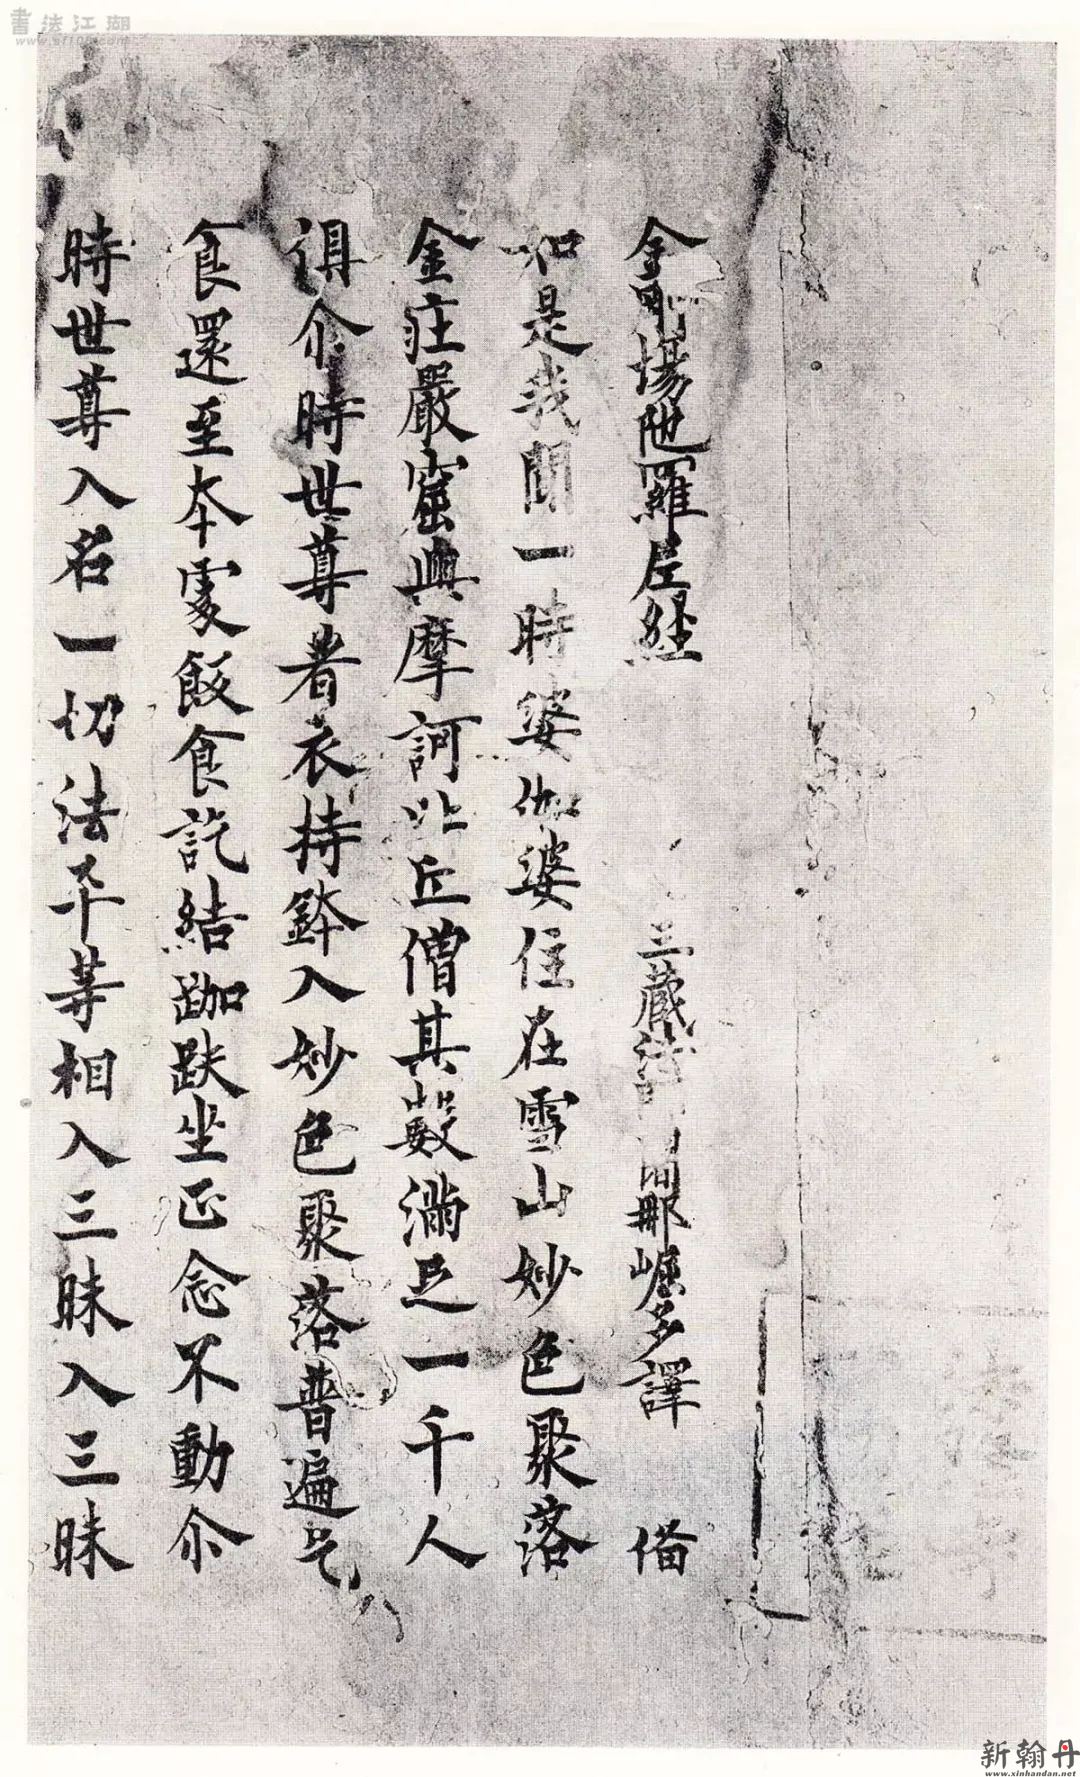 金剛場陁羅尼經 三藏法師闍那崛多譯 俻
如是我聞一時婆伽婆住在雪山妙色聚落
金庄嚴窟與摩訶比丘僧其數滿足一千人
俱尒時世尊著衣持鉢入妙色聚落普遍乞
食還至本處飯食訖結跏趺坐正念不動尒
時世尊入名一切法平等相入三昧入三昧
書法江湖
新翰丹
www.xinhandan.net